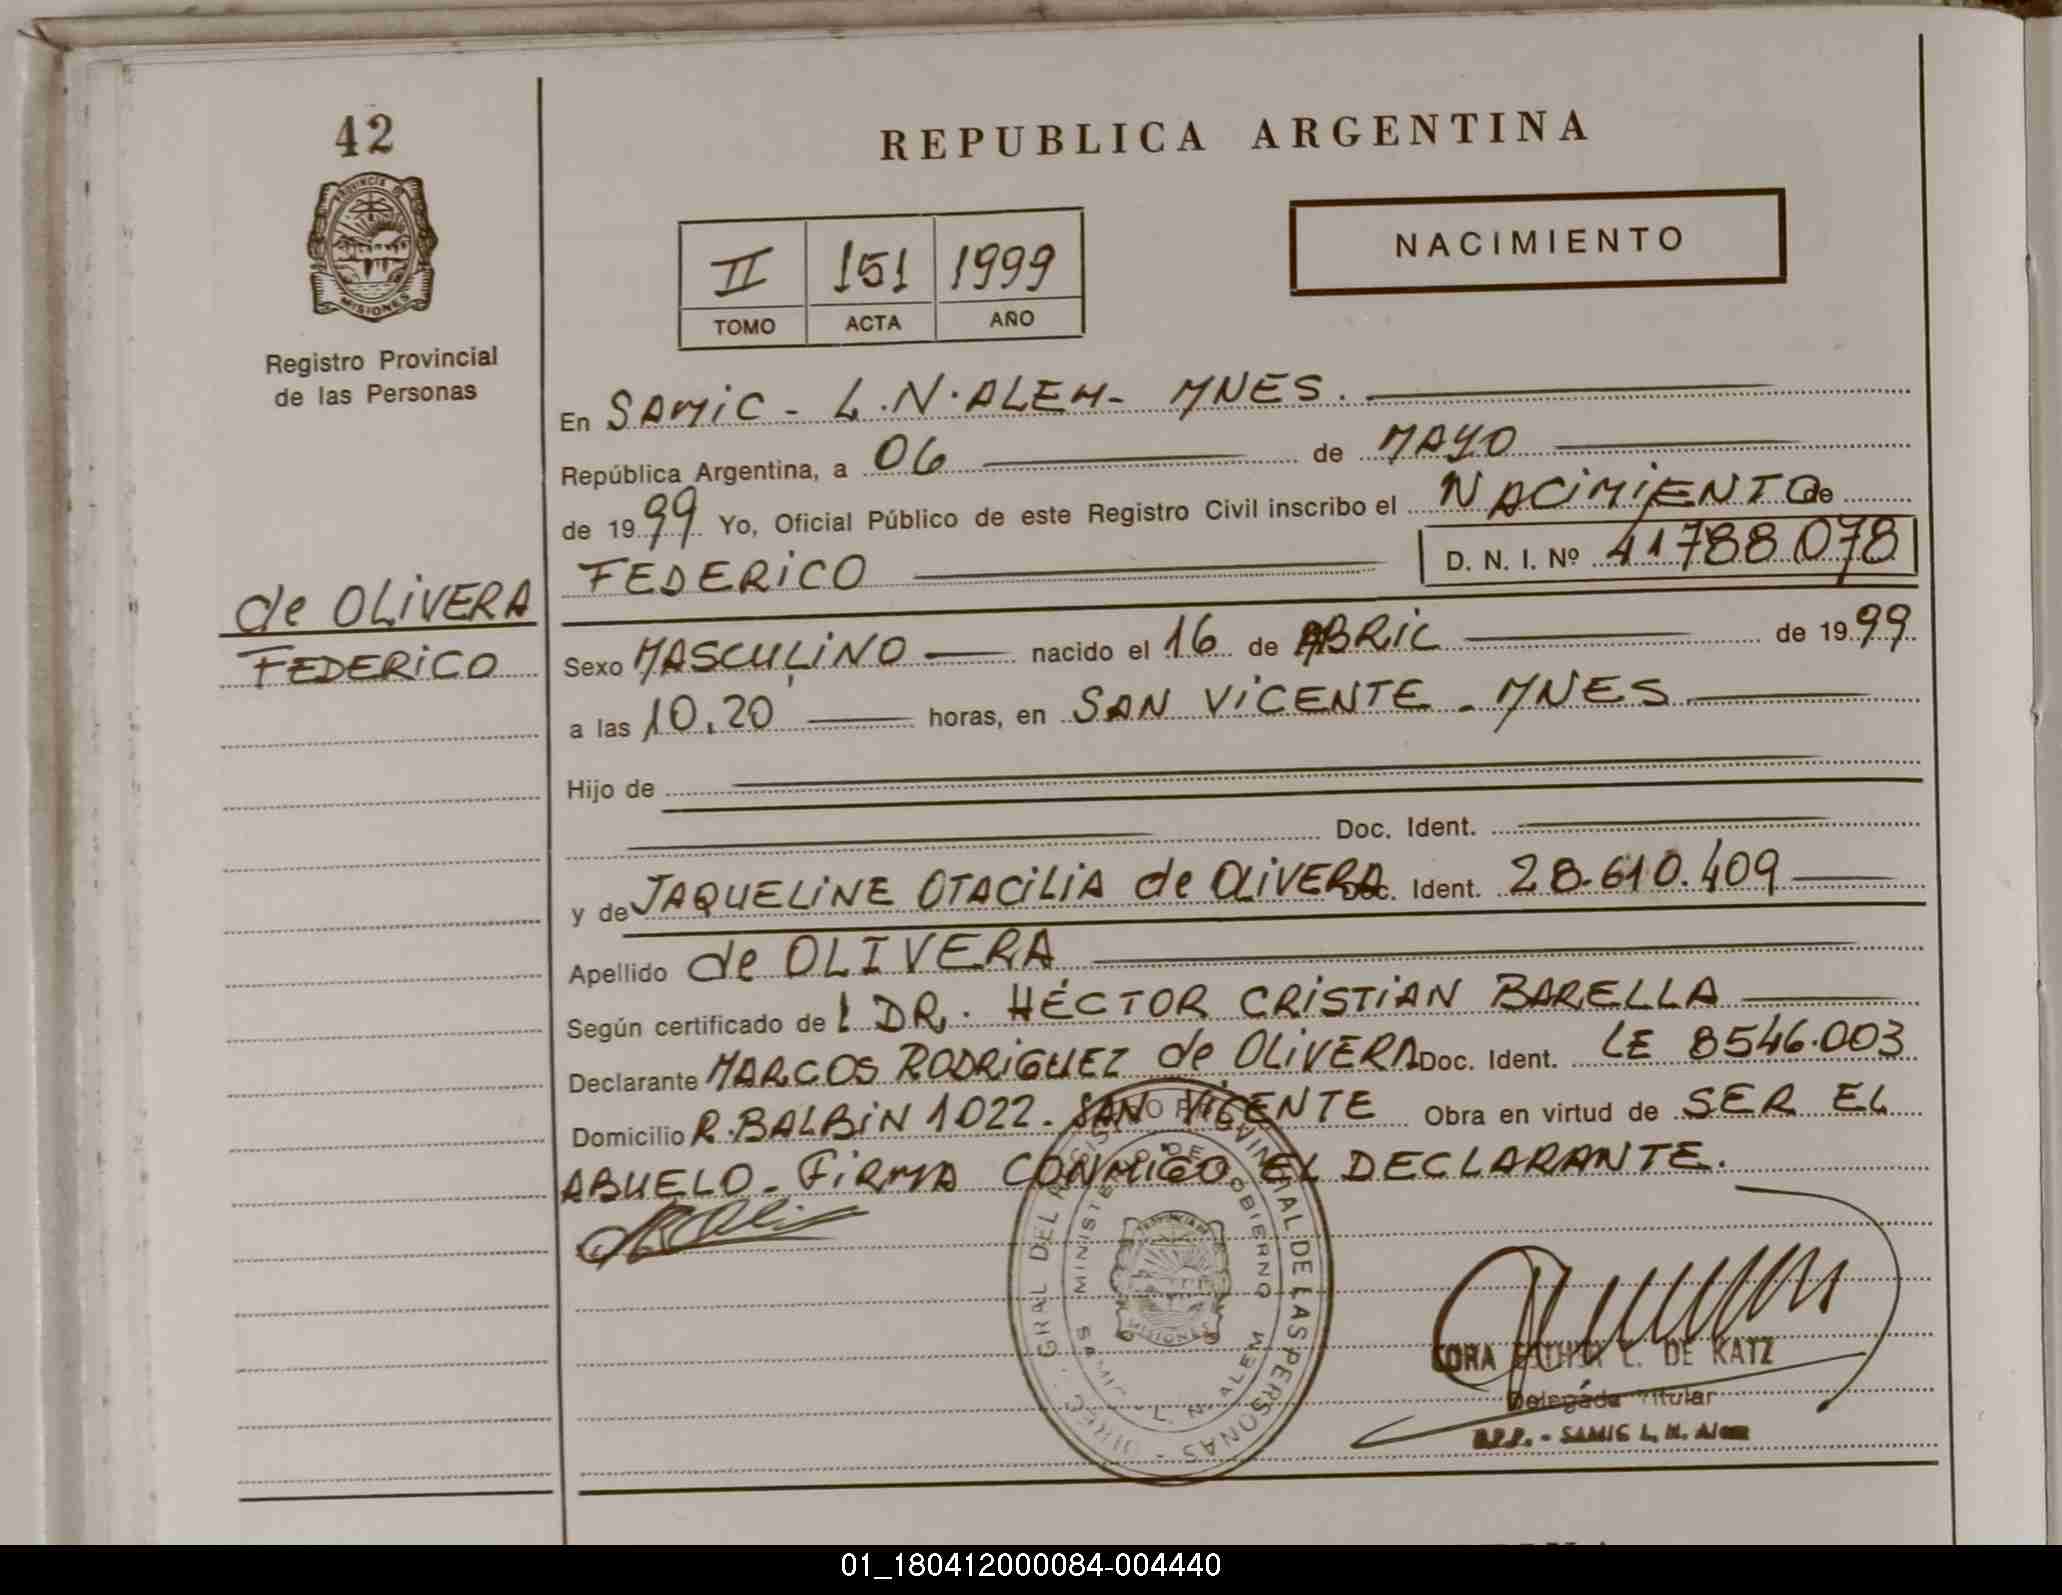 42
REPUBLICA ARGENTINA
PROVINCIA DE
MISIONES
NACIMIENTO
II 151 1999
TOMO ACTA AÑO
Registro Provincial
de las Personas
En SAMIC - L.N.ALEM- MNES.
República Argentina, a 06 de MAYO
de 1999 Yo, Oficial Público de este Registro Civil inscribo el NACIMIENTO de
FEDERICO D. N. I. Nº 41788078
de OLIVERA
FEDERICO
Sexo MASCULINO nacido el 16 de ABRIL de 1999
a las 10,20 horas, en SAN VICENTE - MNES
Hijo de
Doc. Ident.
y de JAQUELINE OTACILIA de OLIVERA Doc. Ident. 28.610.409
Apellido de OLIVERA
Según certificado de l DR. HÉCTOR CRISTIAN BARELLA
Declarante MARCOS RODRIGUEZ de OLIVERA Doc. Ident. LE 8546.003
Domicilio R.BALBIN 1022. SAN VICENTE Obra en virtud de SER EL
ABUELO - FIRMA CONMIGO EL DECLARANTE.
DIREC. GRAL DEL REGISTRO PROVINCIAL DE LAS PERSONAS -
MINISTERIO DE GOBIERNO
SAMIC - L. N. ALEM
MISIONES
DE KATZ
Delegada Titular
SAMIC L. N. Alem
01_180412000084-004440